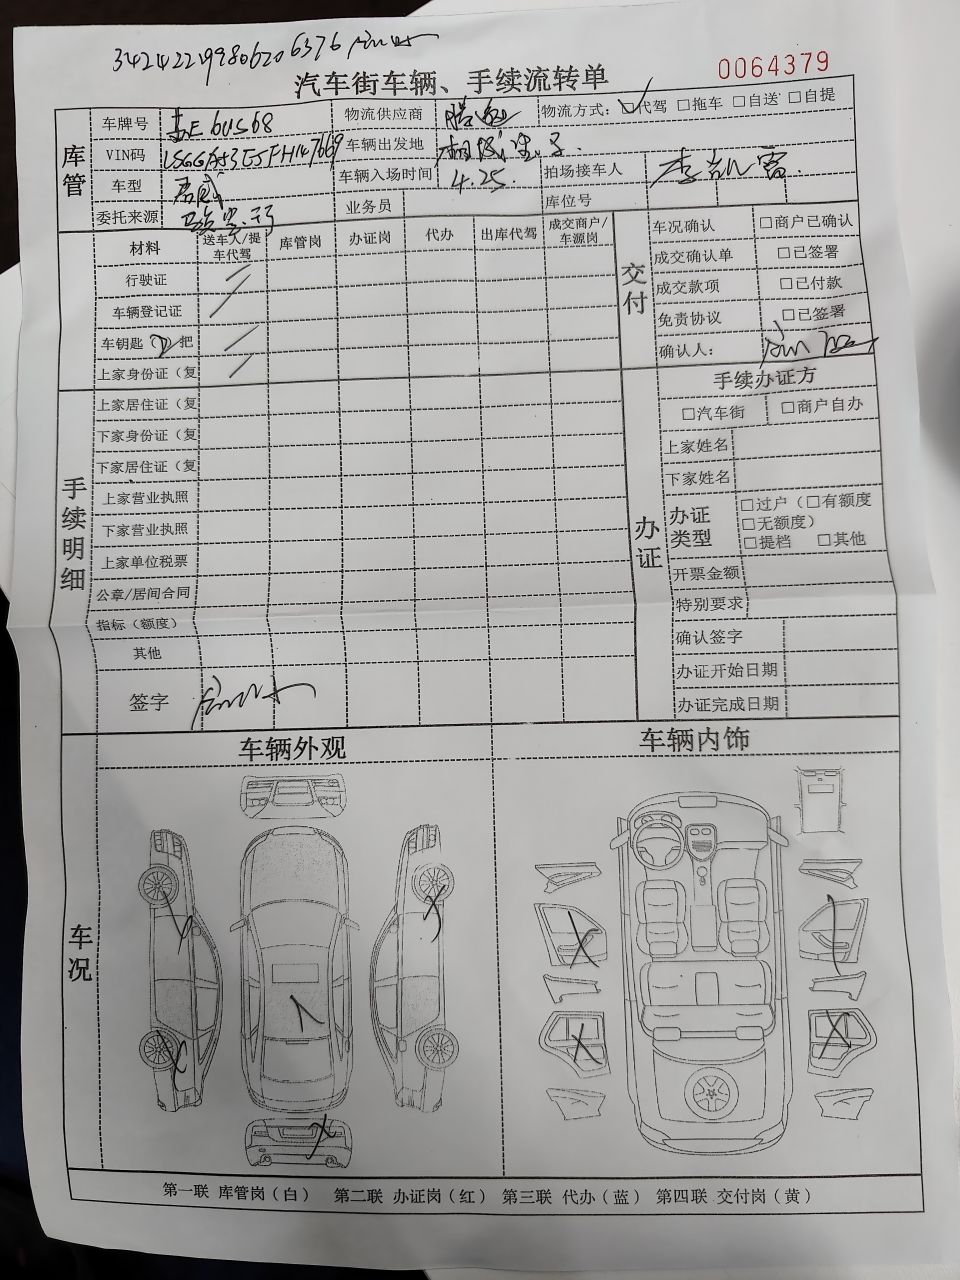 342422199806206376
汽车街车辆、手续流转单
0064379
库管
车牌号
物流供应商
物流方式：☑代驾 □拖车 □自送 □自提
VIN码
车辆出发地
车型 君威
车辆入场时间 4.25.
拍场接车人 李凯雷.
委托来源
业务员
库位号
手续明细
材料 送车人/提车代驾 库管岗 办证岗 代办 出库代驾 成交商户/车源岗
行驶证
车辆登记证
车钥匙（2）把
上家身份证（复
上家居住证（复
下家身份证（复
下家居住证（复
上家营业执照
下家营业执照
上家单位税票
公章/居间合同
指标（额度）
其他
签字
交付
车况确认 □商户已确认
成交确认单 □已签署
成交款项 □已付款
免责协议 □已签署
确认人：
办证
手续办证方
□汽车街 □商户自办
上家姓名
下家姓名
办证类型 □过户（□有额度
□无额度）
□提档 □其他
开票金额
特别要求
确认签字
办证开始日期
办证完成日期
车况
车辆外观
车辆内饰
第一联 库管岗（白） 第二联 办证岗（红） 第三联 代办（蓝） 第四联 交付岗（黄）